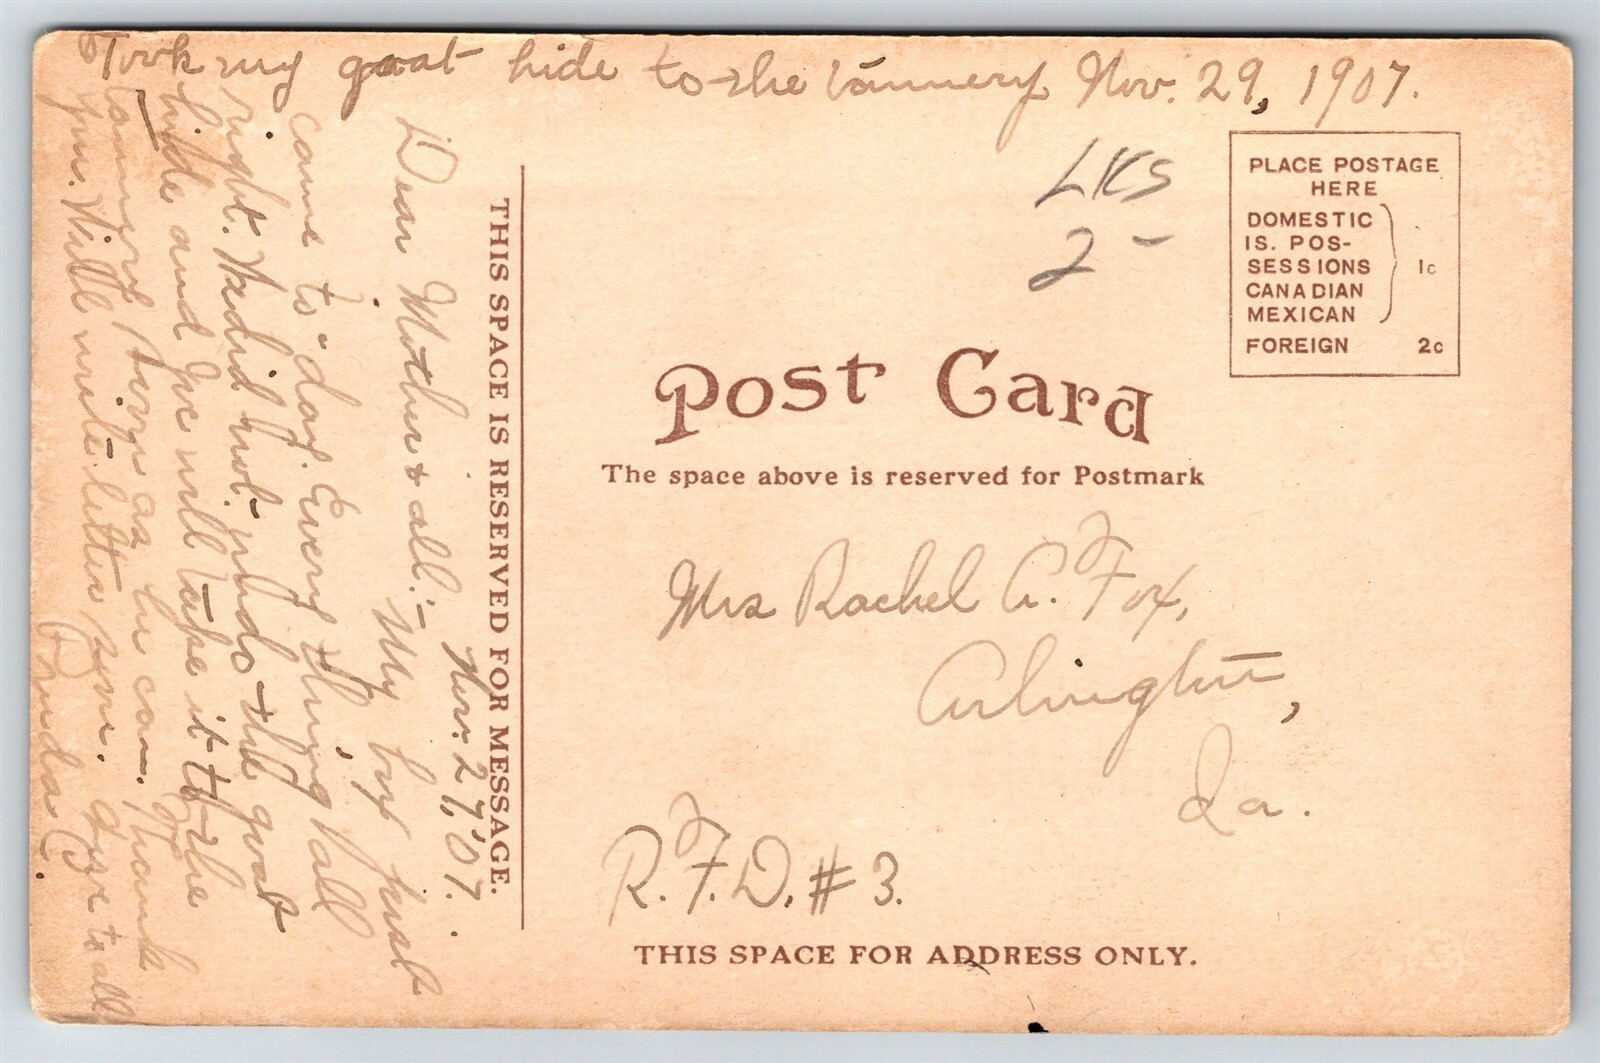 Took my goat hide to the tannery Nov. 29, 1907.
Nov. 27, '07.
Dear Mother & all:- My box just
came to-day. Every thing all
right. We did not mind the goat
hide and Joe will take it to the
tannery soon as he can. Thank
you. Will write letter soon. Love to all
LKS
2-
THIS SPACE IS RESERVED FOR MESSAGE.
PLACE POSTAGE
HERE
DOMESTIC
IS. POS-
SESSIONS
CANADIAN
MEXICAN
1c
FOREIGN 2c
Post Card
The space above is reserved for Postmark
Mrs Rachel A. Fox,
Arlington,
Ia.
R.F.D. # 3.
THIS SPACE FOR ADDRESS ONLY.